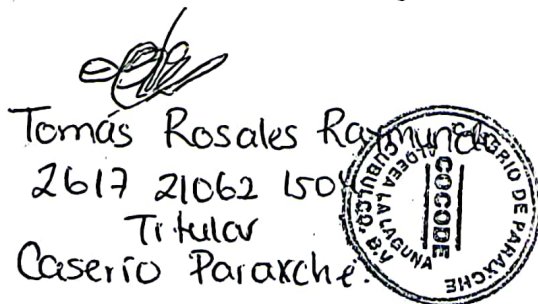 Tomás Rosales Raymundo
2617 21062 150
Titular
Caserío Paraxché.
CASERIO DE PARAXCHE
COCODE
ALDEA LA LAGUNA
CUBULCO, B.V.